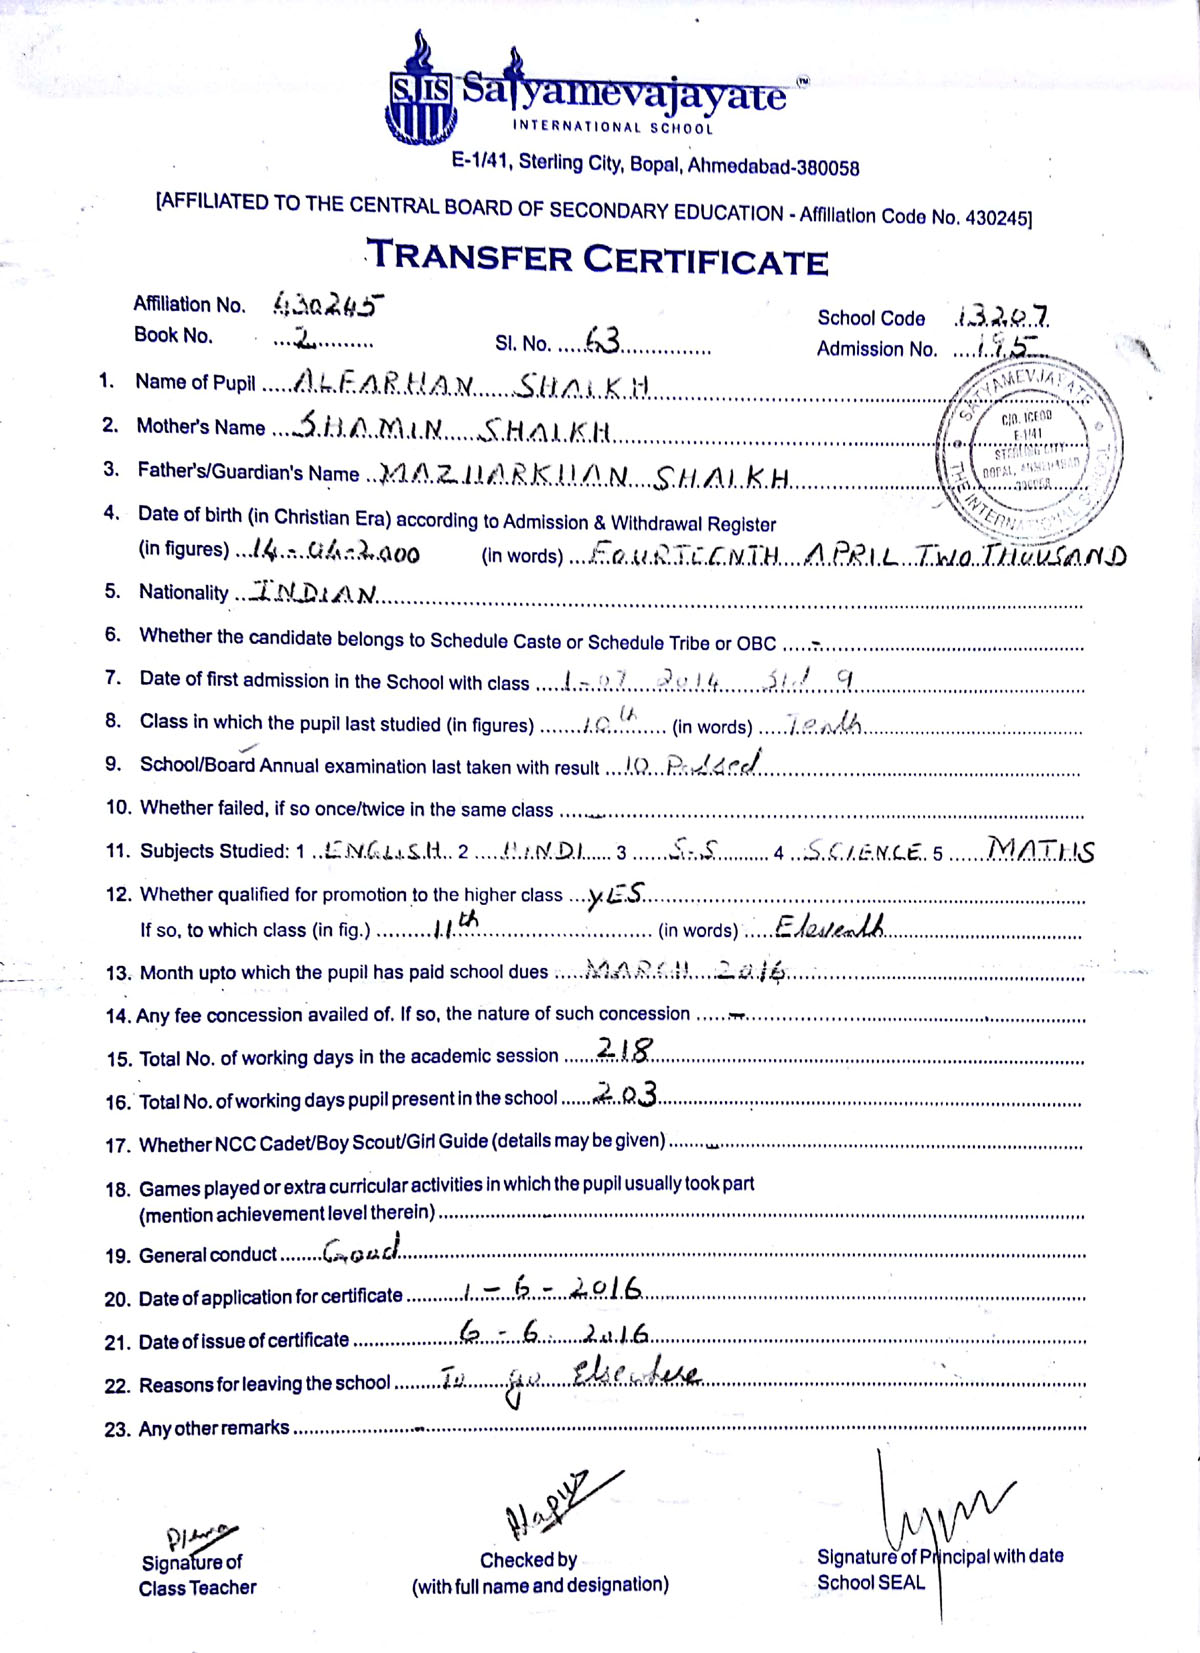 SIS Satyamevajayate TM
INTERNATIONAL SCHOOL
E-1/41, Sterling City, Bopal, Ahmedabad-380058
[AFFILIATED TO THE CENTRAL BOARD OF SECONDARY EDUCATION - Affiliation Code No. 430245]
TRANSFER CERTIFICATE
Affiliation No. 430245
School Code 13207
Book No. 2 Sl. No. 63 Admission No. 195
1. Name of Pupil ALFARHAN SHAIKH
2. Mother's Name SHAMIN SHAIKH
3. Father's/Guardian's Name MAZHARKHAN SHAIKH
SATYAMEVJAYATE THE INTERNATIONAL
E-1/41
STERLING CITY
4. Date of birth (in Christian Era) according to Admission & Withdrawal Register
(in figures) 14-04-2000 (in words) FOURTEENTH APRIL TWO THOUSAND
5. Nationality INDIAN
6. Whether the candidate belongs to Schedule Caste or Schedule Tribe or OBC -
7. Date of first admission in the School with class 1-07 2014 Std 9
8. Class in which the pupil last studied (in figures) 10th (in words) Tenth
9. School/Board Annual examination last taken with result 10 Passed
10. Whether failed, if so once/twice in the same class -
11. Subjects Studied: 1 ENGLISH 2 HINDI 3 S.S 4 SCIENCE 5 MATHS
12. Whether qualified for promotion to the higher class YES
If so, to which class (in fig.) 11th (in words) Eleventh
13. Month upto which the pupil has paid school dues MARCH 2016
14. Any fee concession availed of. If so, the nature of such concession -
15. Total No. of working days in the academic session 218
16. Total No. of working days pupil present in the school 203
17. Whether NCC Cadet/Boy Scout/Girl Guide (details may be given) -
18. Games played or extra curricular activities in which the pupil usually took part
(mention achievement level therein) -
19. General conduct Good
20. Date of application for certificate 1-6-2016
21. Date of issue of certificate 6-6-2016
22. Reasons for leaving the school To go Elsewhere
23. Any other remarks -
Signature of Checked by Signature of Principal with date
Class Teacher (with full name and designation) School SEAL